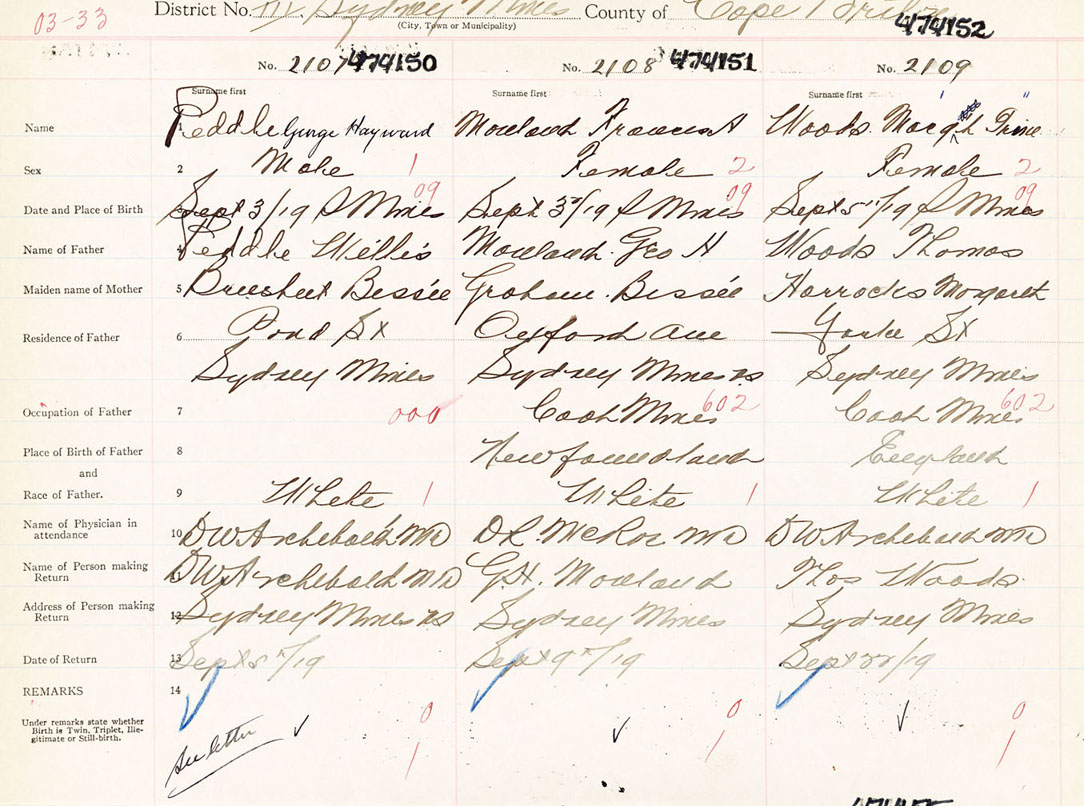 03-33
District No. III Sydney Mines County of Cape Breton
(City, Town or Municipality)
474152
No. 2107 474150 No. 2108 474151 No. 2109
Surname first Surname first Surname first
Name 1 Peddle George Hayward Moreland Frances A Woods
Sex 2 Male 1 Female 2 Female 2
09 09 09
Date and Place of Birth 3 Sept 3/19 S Mines Sept 3rd/19 S Mines Sept 5th/19 S Mines
Name of Father 4 Peddle Willis Moreland Geo H Woods Thomas
Maiden name of Mother 5 Bessie Graham Bessie Horrocks Margaret
Residence of Father 6 Pond St Oxford Ave Yorke St
Sydney Mines Sydney Mines ns Sydney Mines
Occupation of Father 7 000 Coal Mines 602 Coal Mines 602
Place of Birth of Father 8 Newfoundland England
and
Race of Father. 9 White 1 White 1 White 1
Name of Physician in
attendance 10 DW Archibald MD DL McRae MD DW Archibald MD
Name of Person making
Return 11 DW Archibald MD G.H. Moreland Thos Woods
Address of Person making
Return 12 Sydney Mines ns Sydney Mines Sydney Mines
Date of Return 13 Sept 5th/19 Sept 9th/19 Sept 22/19
REMARKS 14
0 0 0
Under remarks state whether
Birth is Twin, Triplet, Ille-
gitimate or Still-birth.
See letter ✓ 1 ✓ 1 ✓ 1